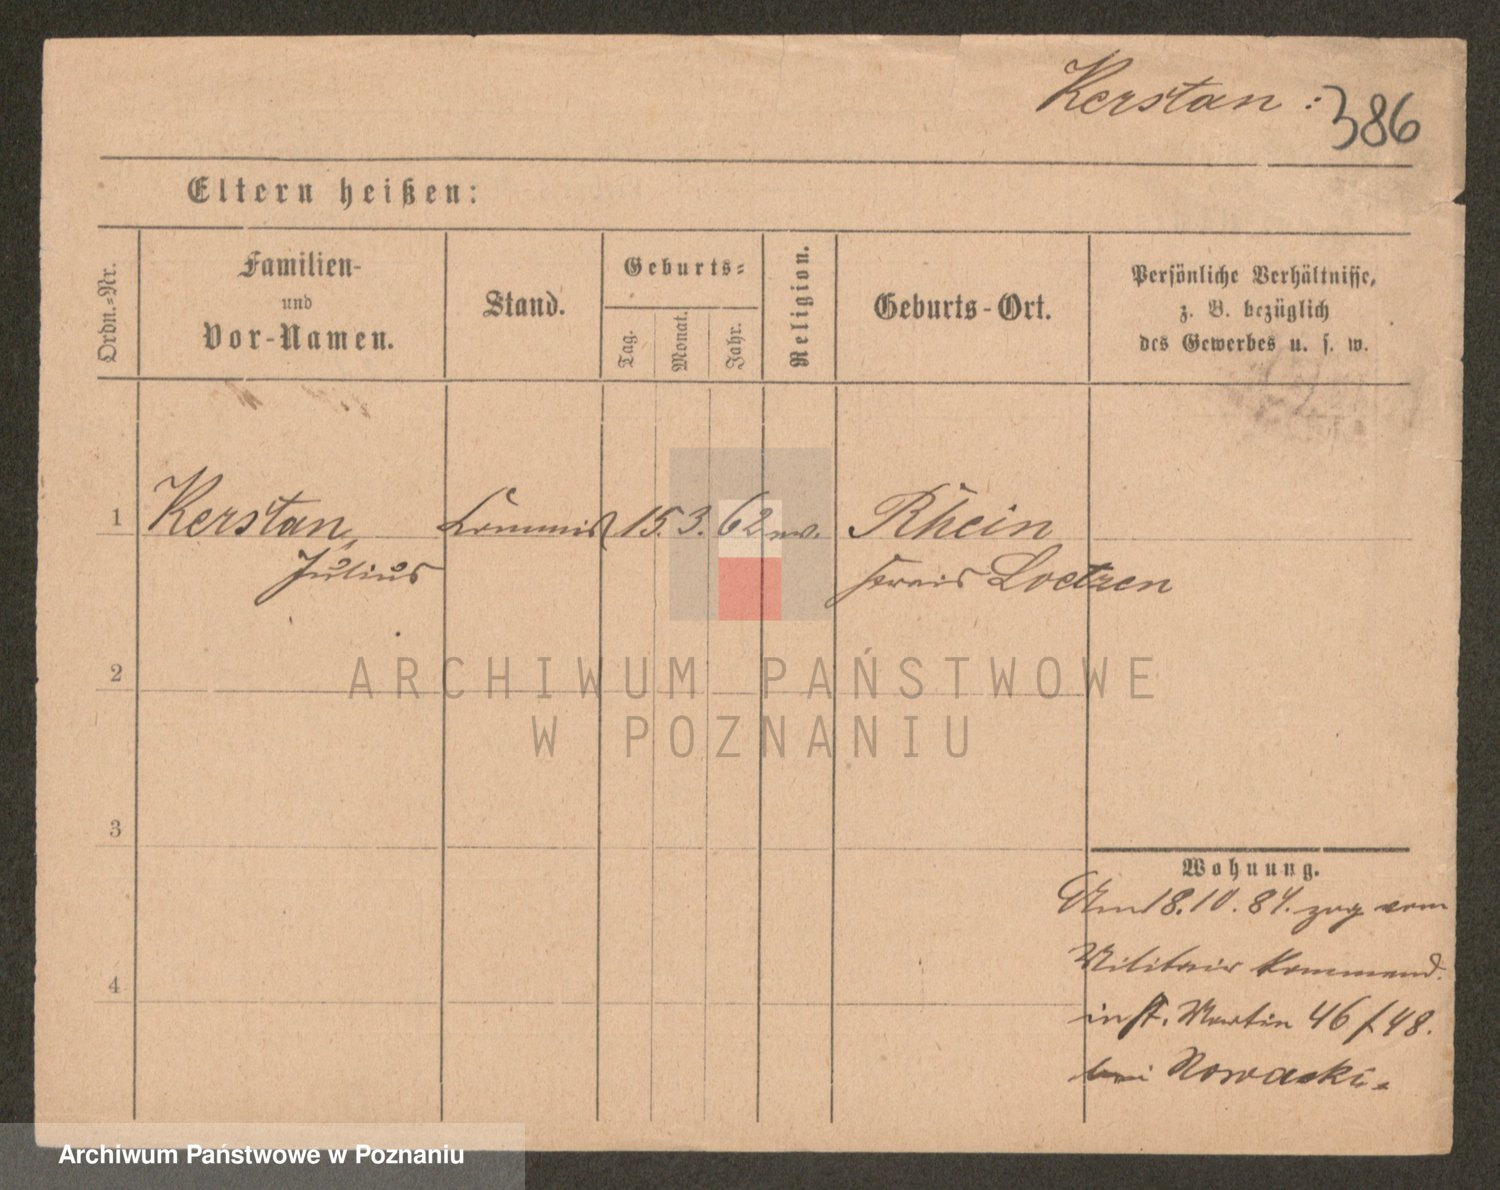 Kerstan : 386
Eltern heißen:
Ordn.=Nr.
Familien-
und
Vor-Namen.
Stand.
Geburts=
Tag.
Monat.
Jahr.
Religion.
Geburts-Ort.
Persönliche Verhältnisse,
z. B. bezüglich
des Gewerbes u. s. w.
1 Kerstan, Commis 15. 3. 62 ev. Rhein
Julius Kreis Loetzen
2
ARCHIWUM PAŃSTWOWE
W POZNANIU
3
Wohnung.
Am 18.10.84. zog vom
Militair Kommand.
in St. Martin 46/48.
bei Nowacki.
4
Archiwum Państwowe w Poznaniu